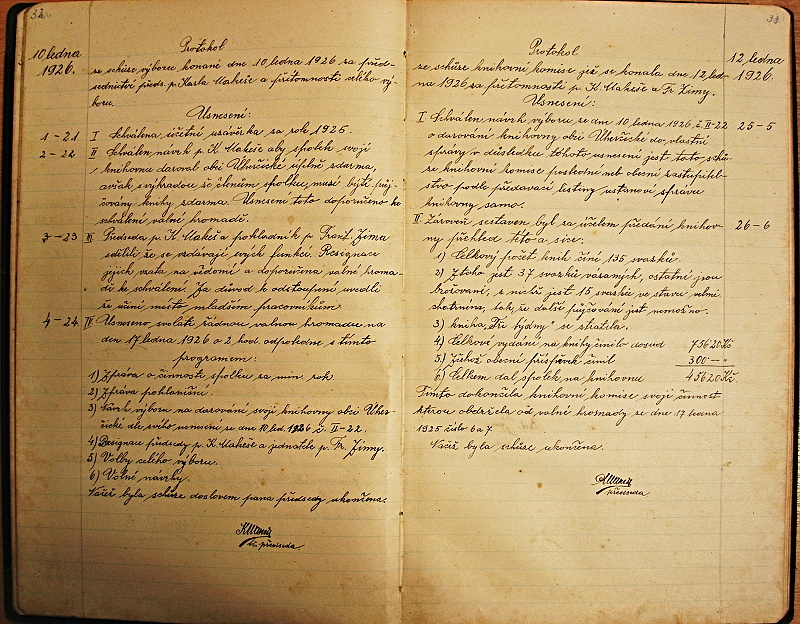 32.
10 ledna
1926.
Protokol
ze schůze výboru konané dne 10 ledna 1926 za před-
sednictví předs. p. Karla Makeše a přítomnosti celého vý-
boru.
Usnesení:
1 - 21 I Schválena účetní uzávěrka za rok 1925.
2 - 22 II Schválen návrh p. K. Makeše aby spolek svoji
knihovnu daroval obci Uherčické úplně zdarma,
avšak s výhradou že členům spolku musí býti půj-
čovány knihy zdarma. Usnesení toto doporučeno ke
schválení valné hromadě.
3 - 23 III Předseda p. K. Makeš a pokladník p. Frant. Zima
sdělili že se vzdávají svých funkcí. Resignace
jejich vzata na vědomí a doporučena valné hroma-
dě ke schválení. Za důvod k odstoupení uvedli
že učiní místo mladším pracovníkům.
4 - 24 IV Usneseno svolati řádnou valnou hromadu na
den 17 ledna 1926 o 2 hod. odpoledne s tímto
programem:
1) Zpráva o činnosti spolku za min. rok.
2) Zpráva pokladní.
3) Návrh výboru na darování svojí knihovny obci Uher-
čické dle svého usnesení ze dne 10 led. 1926 č. II-22.
4) Resignace předsedy p. K. Makeše a jednatele p. Fr. Zimy.
5) Volby celého výboru.
6) Volné návrhy.
Načež byla schůze doslovem pana předsedy ukončena.
předseda
33
12 ledna
1926.
Protokol
ze schůze knihovní komise jež se konala dne 12 led-
na 1926 za přítomnosti p. K. Makeše a Fr. Zimy.
Usnesení:
I Schválen návrh výboru ze dne 10 ledna 1926 č. II-22 25 - 5
o darování knihovny obci Uherčické do vlastní
správy v důsledku tohoto usnesení jest tato schů-
ze knihovní komise poslední neb obecní zastupitel-
stvo podle předávací listiny ustanoví správu
knihovny samo.
II. Zároveň sestaven byl za účelem předání knihov- 26 - 6
ny přehled této a sice:
1) Celkový počet knih činí 135 svazků.
2) Z toho jest 37 svazků vázaných, ostatní jsou
brožované, z nichž jest 15 svazků ve stavu velmi
chatrném, tak, že další půjčování jest nemožno.
3) kniha "Tři týdny" se ztratila.
4) Celkové vydání na knihy činilo dosud 756 20 Kč
5) Z čehož obecní příspěvek činil 300 -- "
6) Celkem dal spolek na knihovnu 456 20 Kč.
Tímto dokončila knihovní komise svoji činnost
kterou obdržela od valné hromady ze dne 17 ledna
1925 číslo 6 a 7.
Načež byla schůze ukončena.
předseda